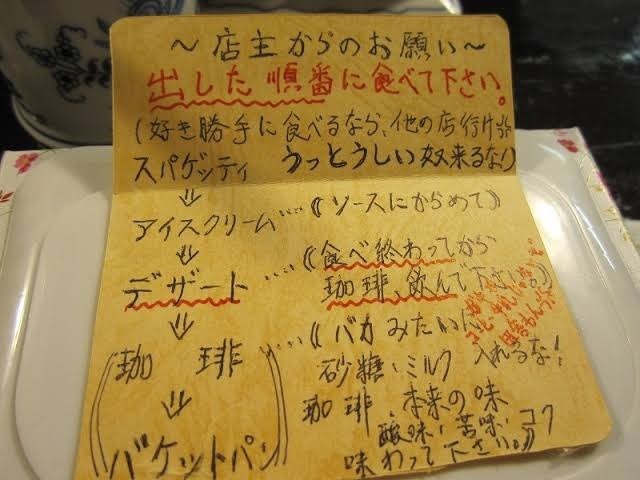 ～店主からのお願い～
出した順番に食べて下さい。
(好き勝手に食べるなら、他の店行け!!
スパゲッティ うっとうしい奴来るな!)
⇓
アイスクリーム…《ソースにからめて》
⇓
デザート…《食べ終わってから
珈琲、飲んで下さい。》
⇓
珈琲…《バカみたいに
砂糖・ミルク 入れるな!
珈琲、本来の味
酸味・苦味・コク
味わって下さい。》
⇓
バケットパン